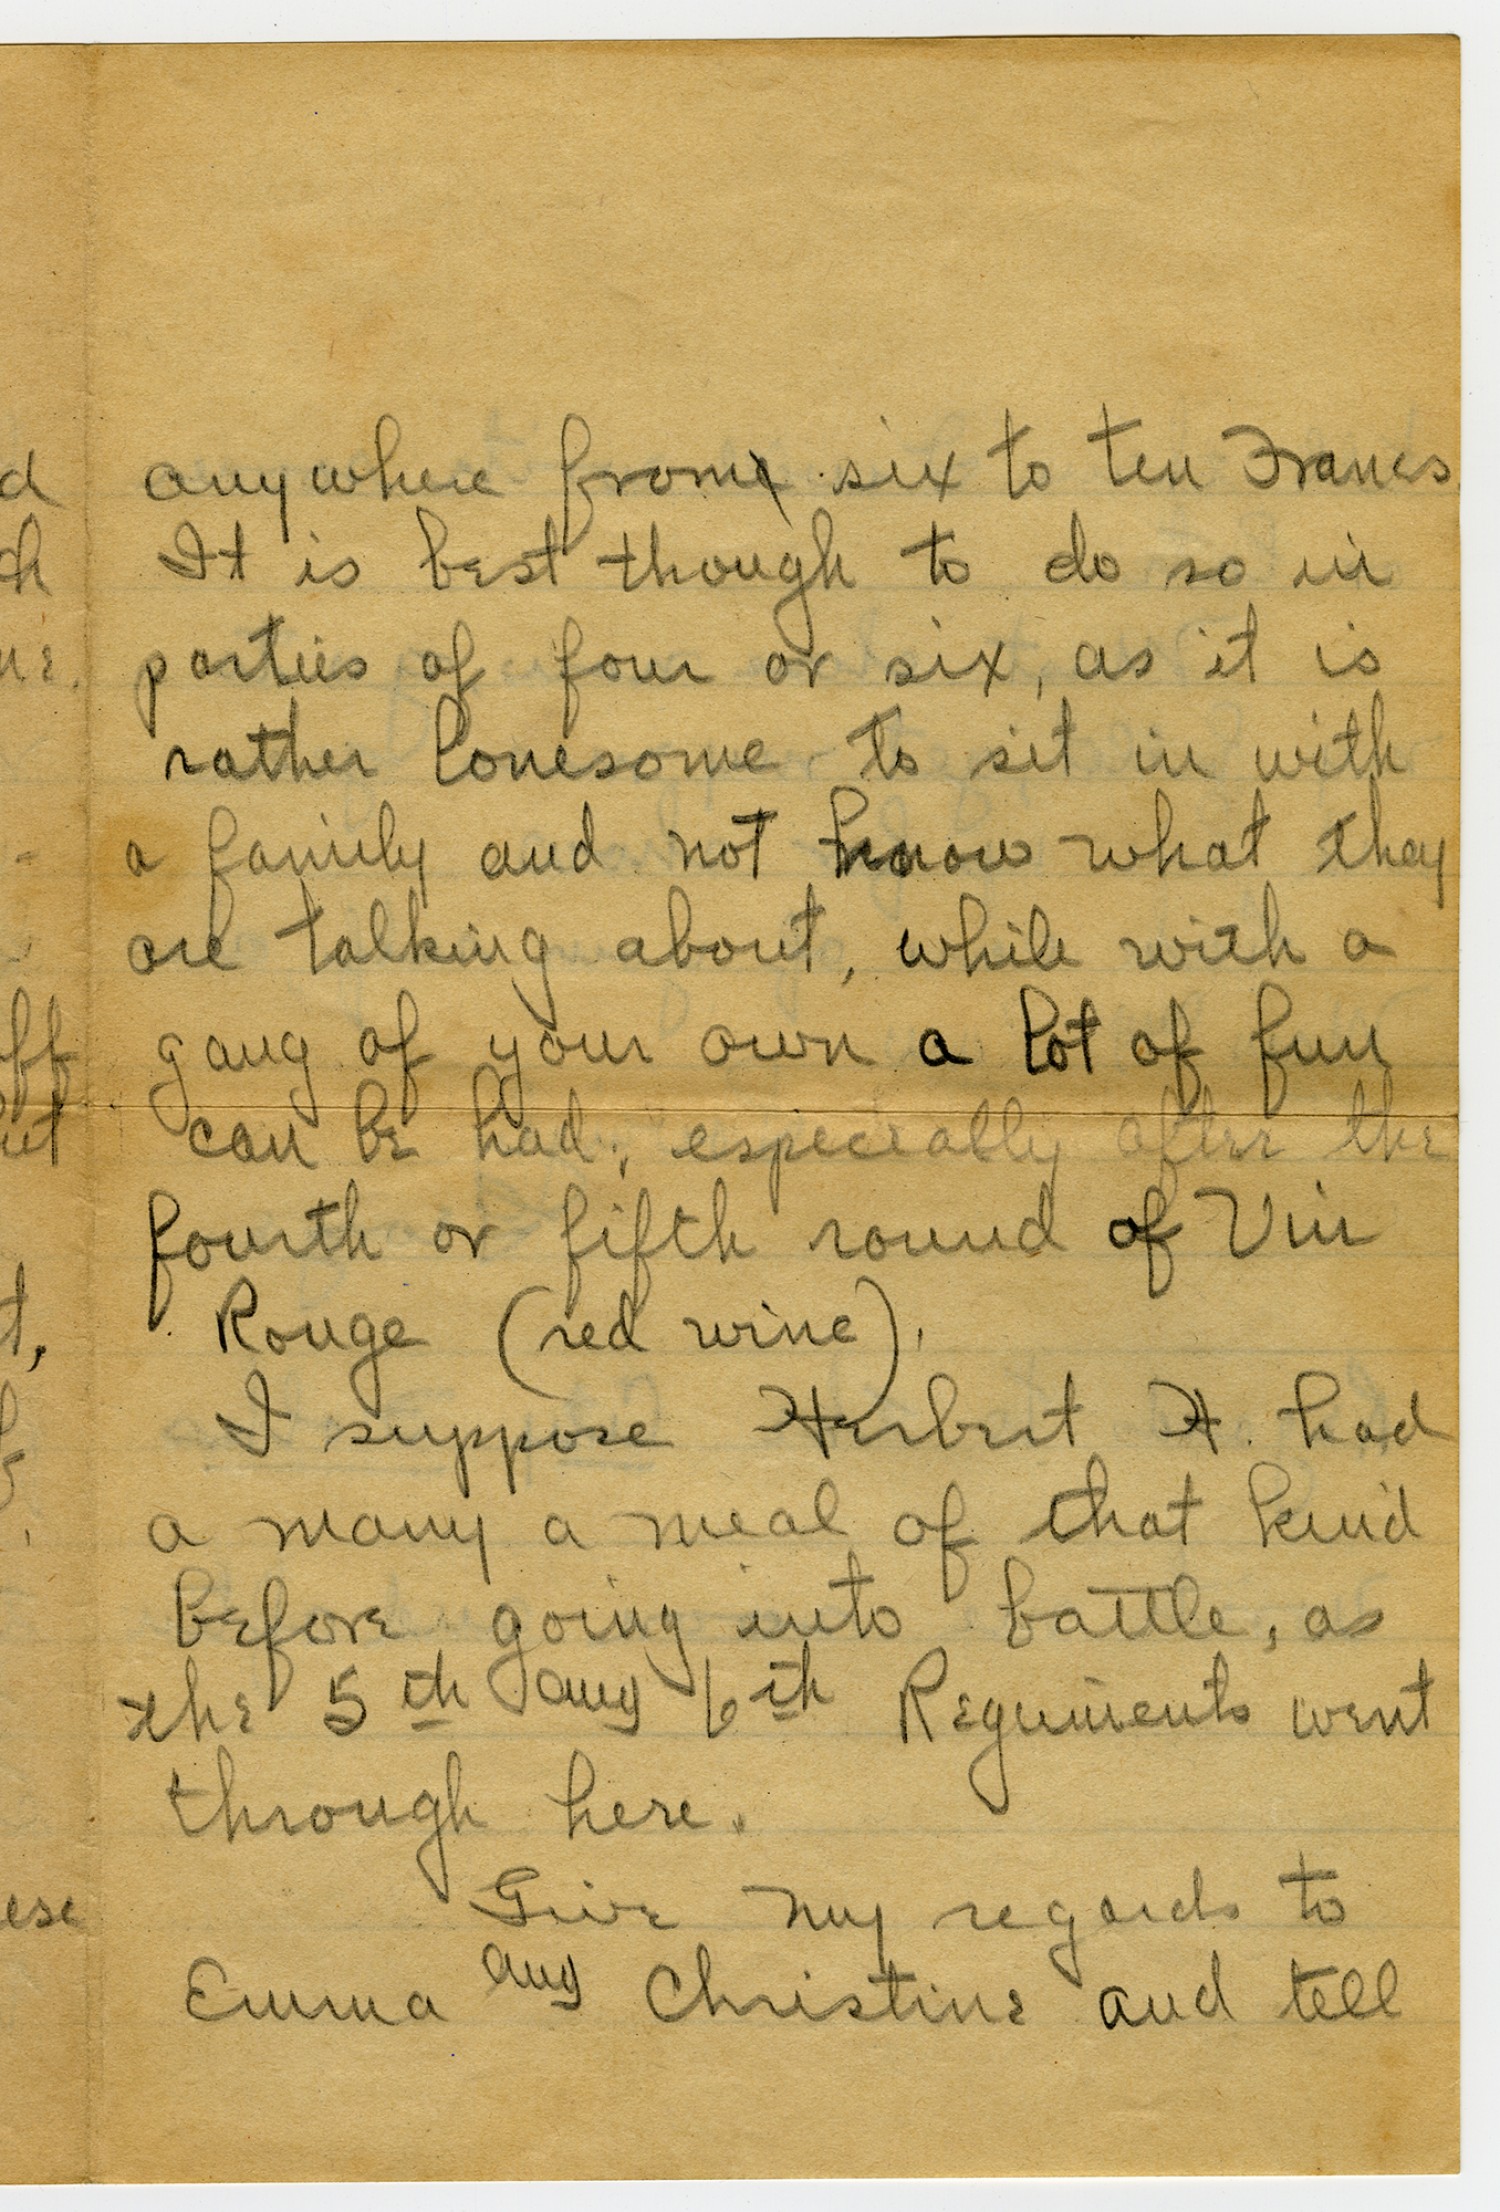 d
ch
ne.
-
off
ut
t,
ese
anywhere from six to ten Francs
It is best though to do so in
parties of four or six, as it is
rather lonesome to sit in with
a family and not know what they
are talking about, while with a
gang of your own a lot of fun
can be had, especially after the
fourth or fifth round of Vin
Rouge (red wine).
I suppose Herbert H. had
a many a meal of that kind
before going into battle, as
the 5th and 6th Reguiments went
through here.
Give my regards to
Emma and Christine and tell